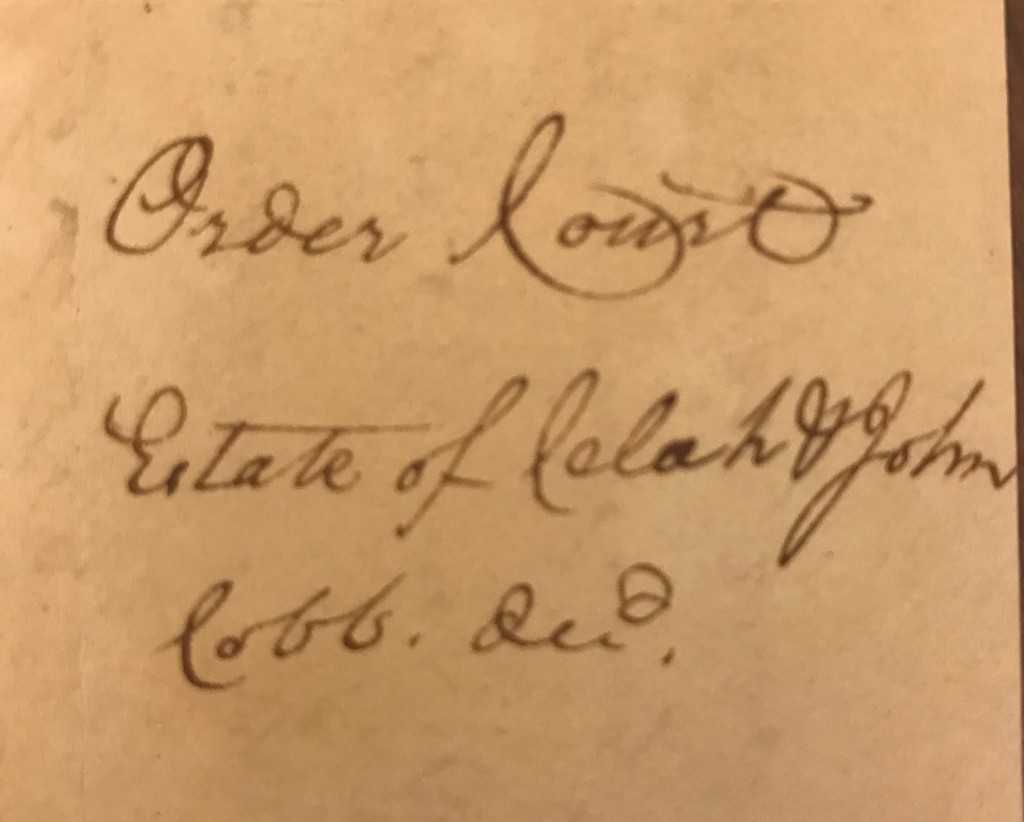 Order Court
Estate of Celah & John
Cobb. Decd.